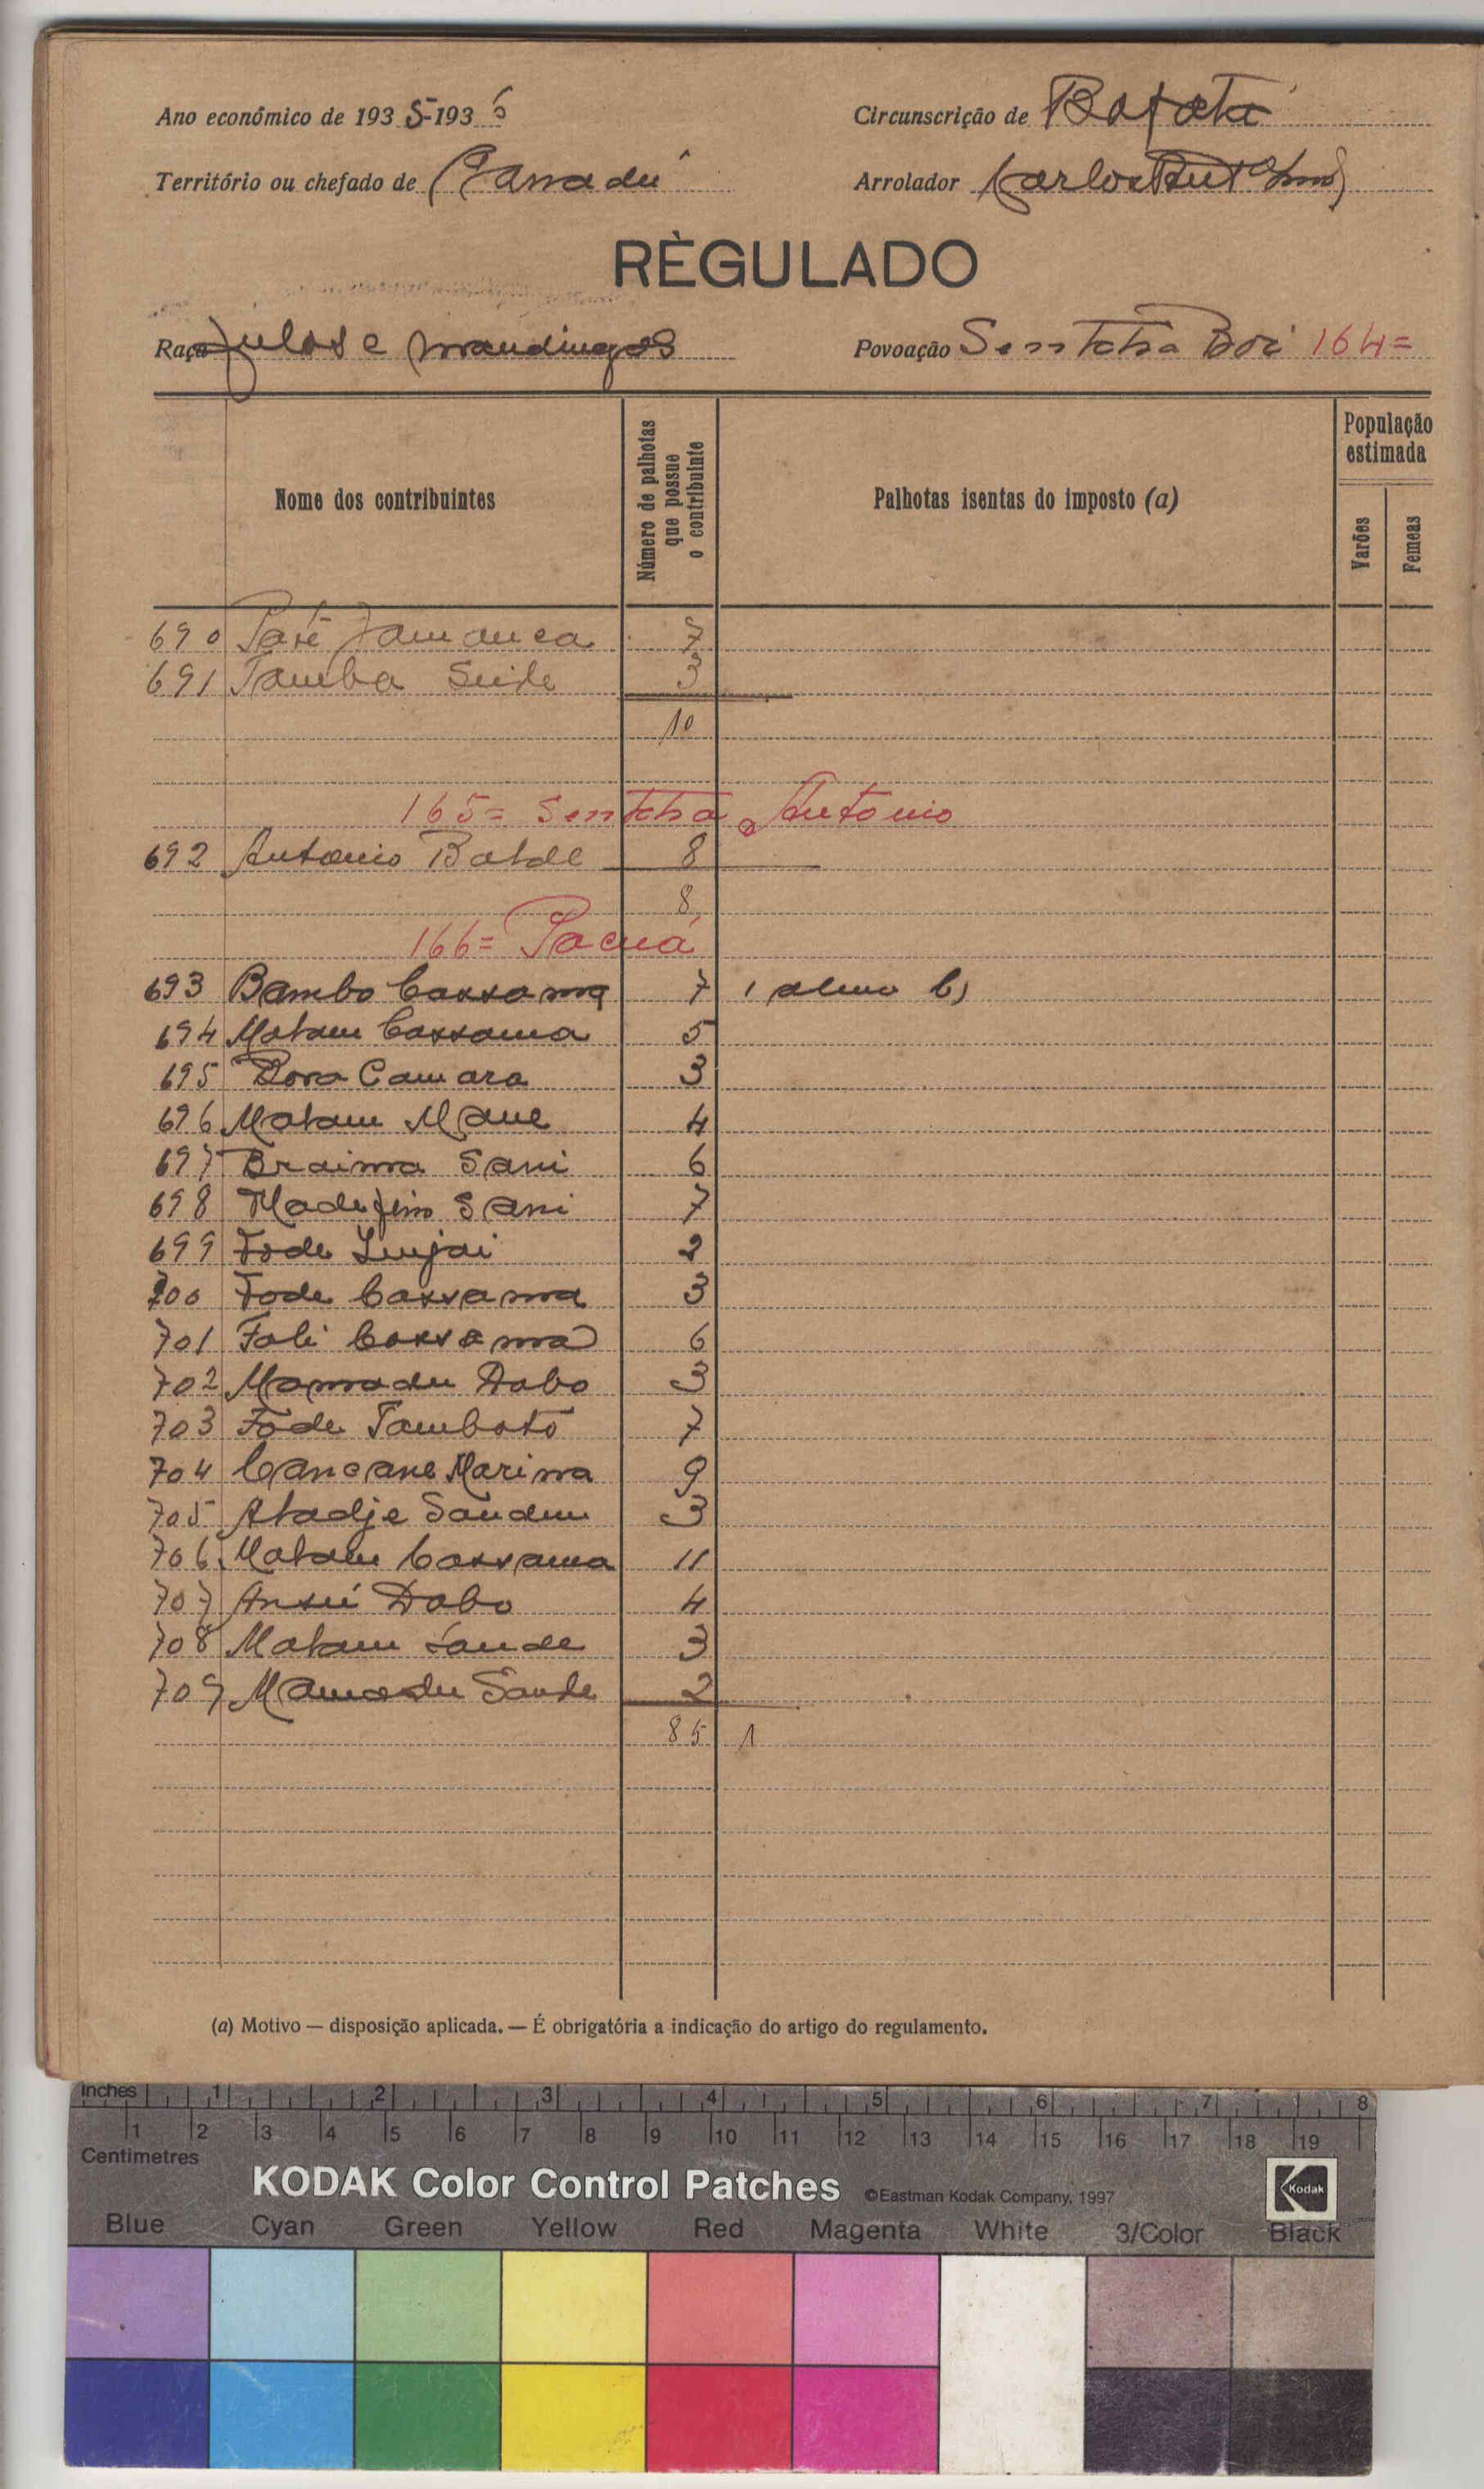 Ano económico de 1935-1936
Circunscrição de Bafatá
Território ou chefado de Ganadú
Arrolador Carlos
RÈGULADO
Raça fulas e mandingas
Povoação Sentcha Boi 164=
Nome dos contribuintes
Número de palhotas que possue o contribuinte
Palhotas isentas do imposto (a)
População estimada
Varões
Femeas
690 Paté Jamanca 7
691 Samba Seide 3
10
165= Sentcha Antonio
692 Antonio Balde 8
8
166= Pacuá
693 Bambo Cassama 7 1 aluno b)
694 Malam Cassama 5
695 Bora Camara 3
696 Malam Mane 4
697 Braima Sani 6
698 Sani 7
699 Fode Injai 2
700 Fode Cassama 3
701 Fali Cassama 6
702 Mamadu Dabo 3
703 Fode Tamboto 7
704 Cancane Marima 9
705 Aladje 3
706 Malam Cassama 11
707 Ansú Dabo 4
708 Malam Sande 3
709 Mamadu Sande 2
85 1
(a) Motivo — disposição aplicada. — É obrigatória a indicação do artigo do regulamento.
Inches 1 2 3 4 5 6 7 8
1 2 3 4 5 6 7 8 9 10 11 12 13 14 15 16 17 18 19
Centimetres
KODAK Color Control Patches ©Eastman Kodak Company, 1997 Kodak
Blue Cyan Green Yellow Red Magenta White 3/Color Black